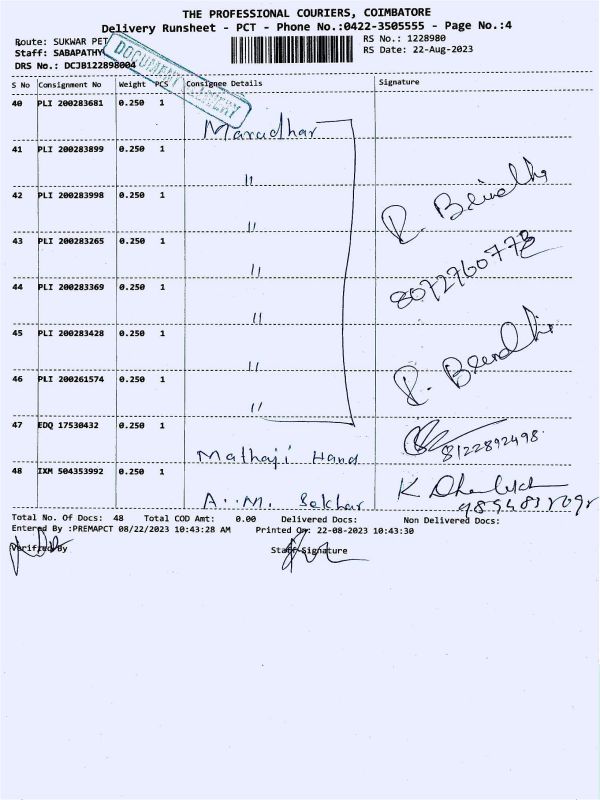 THE PROFESSIONAL COURIERS, COIMBATORE
Delivery Runsheet - PCT - Phone No.:0422-3505555 - Page No.:4
Route: SUKWAR PET
RS No.: 1228980
Staff: SABAPATHY
RS Date: 22-Aug-2023
DRS No.: DCJB122898004
DOCUMENT DELIVERY
S No Consignment No Weight PCS Consignee Details Signature
40 PLI 200283681 0.250 1
Marudhar
41 PLI 200283899 0.250 1
"
42 PLI 200283998 0.250 1
"
43 PLI 200283265 0.250 1
"
8072760778
44 PLI 200283369 0.250 1
"
45 PLI 200283428 0.250 1
"
46 PLI 200261574 0.250 1
"
47 EDQ 17530432 0.250 1
8122892498
Mathaji Hand
48 IXM 504353992 0.250 1
A.M. Sekhar
Total No. Of Docs: 48 Total COD Amt: 0.00 Delivered Docs: Non Delivered Docs:
Entered By :PREMAPCT 08/22/2023 10:43:28 AM Printed On: 22-08-2023 10:43:30
Verified By Staff Signature